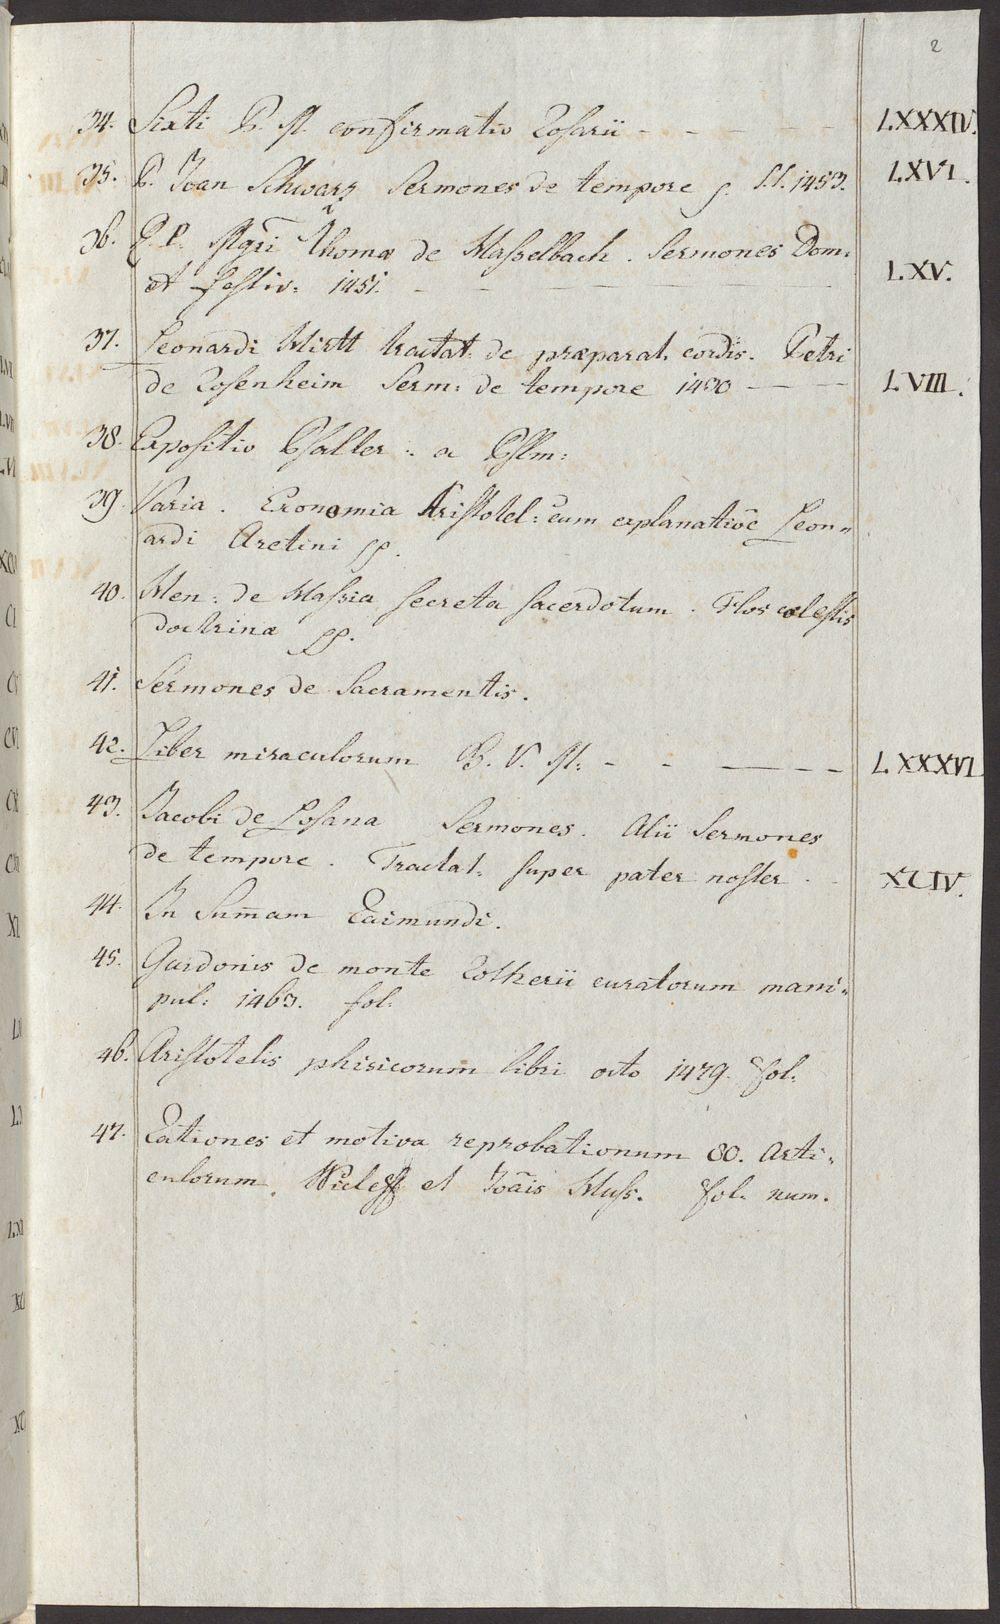 2
34. Sixti P. M. confirmatio Rosarii - - - - - LXXXIV.
35. P. Joan Schwarz Sermones de tempore p. I.I. 1453. LXVI.
36. P. P. Mgri Thomæ de Hasselbach. Sermones Dom:
et festiv: 1451. - - - - - LXV.
37. Leonardi Hirtt tractat: de præparat. cordis. Petri
de Rosenheim Serm: de tempore 1490 - - - LVIII.
38. Expositio Psalter: a Pslm:
39. Varia. Economia Aristotel: cum explanatiōe Leon„
ardi Aretini pp.
40. Hen: de Hassia secreta sacerdotum. Flos cœlestis
doctrinæ pp.
41. Sermones de Sacramentis.
42. Liber miraculorum B. V. M: - - - - - LXXXVI
43. Jacobi de Losana Sermones. Alii Sermones
de tempore. Tractat: super pater noster. - XCIV.
44. In Sum̄am Raimundi.
45. Guidonis de monte Rotherii curatorum mani„
pul: 1463. fol:
46. Aristotelis phisicorum libri octo 1479. fol:
47. Rationes et motiva reprobationum 80. Arti„
culorum Wicleff et Joāis Huss. fol. num.